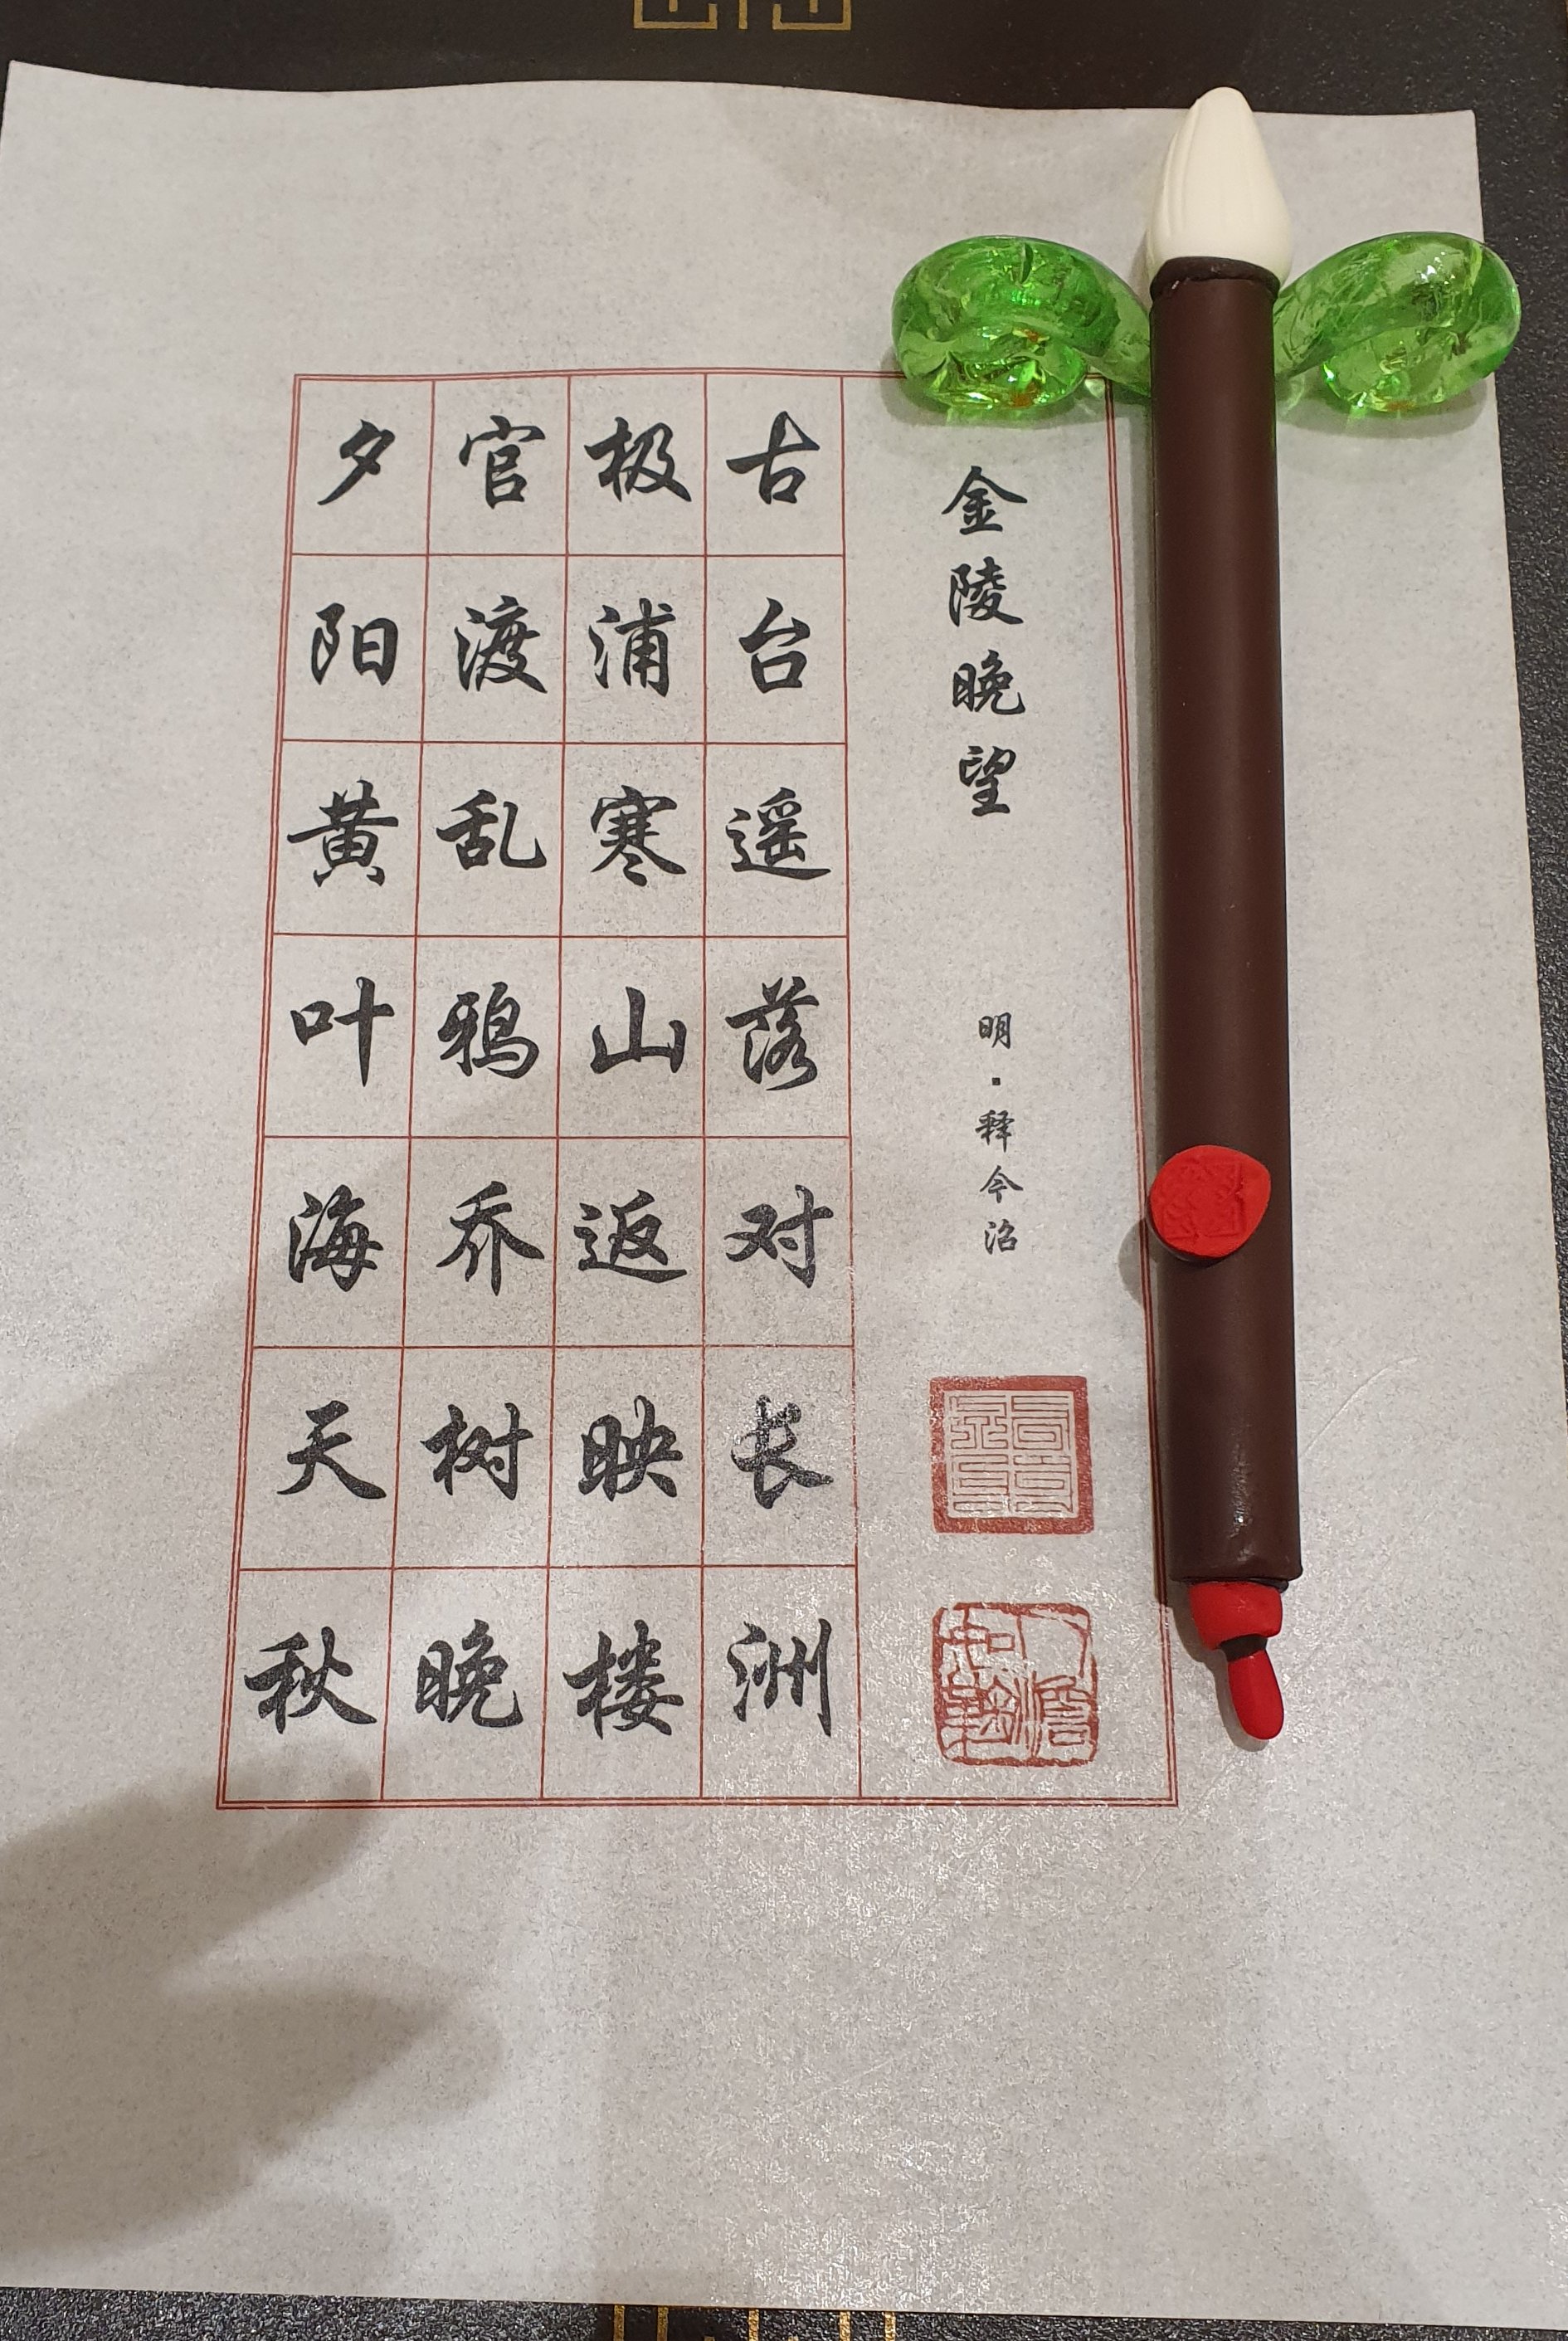 金陵晚望
明·释今沼
古台遥落对长洲
极浦寒山返映楼
官渡乱鸦乔树晚
夕阳黄叶海天秋